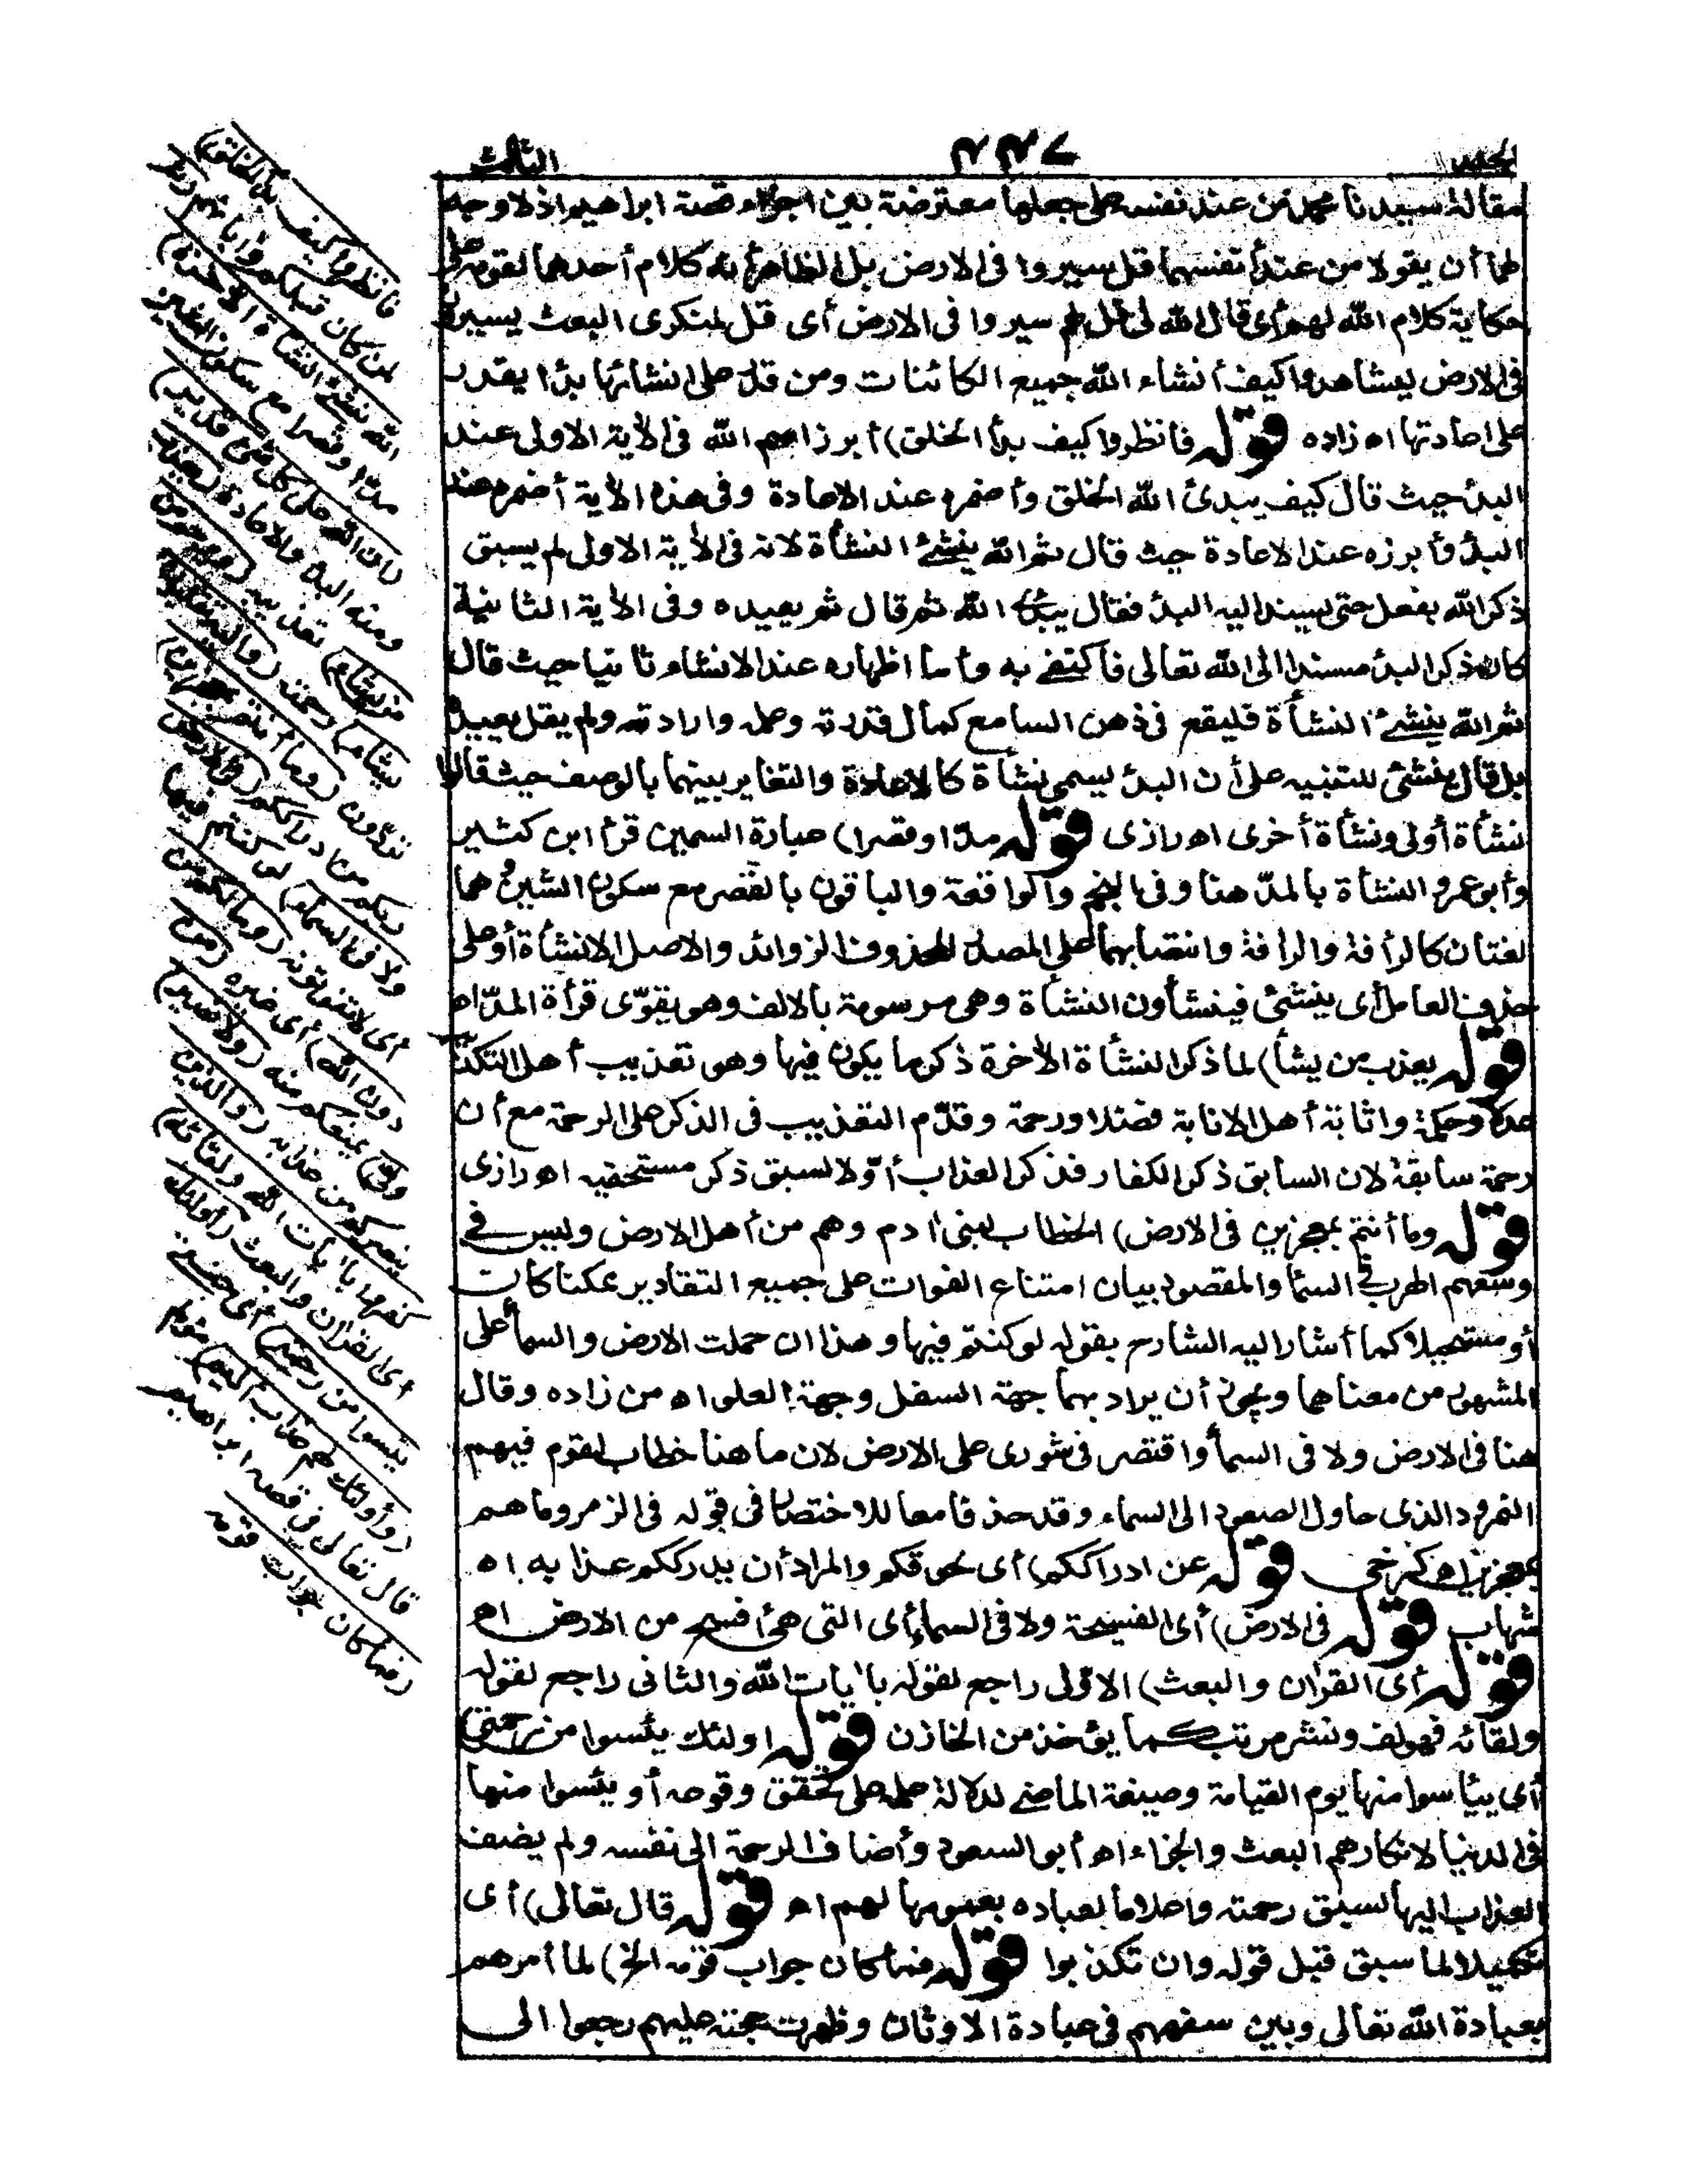 الثالث
٤٤٧
مقالة سيدنا محمد من عند نفسه على جعلها معترضة بين اجزاء قصة ابراهيم اذ لا وجه
لهما أن يقولا من عند أنفسهما قل سيروا فى الارض بل الظاهر أنه كلام أحدهما لقومه على
حكاية كلام الله لهم أى قال الله لى قل لهم سيروا فى الارض أى قل لمنكرى البعث يسيروا
فى الارض ليشاهدوا كيف أنشاء الله جميع الكائنات ومن قدر على انشائها بدأ يقدر
على اعادتها اه زاده قوله فانظروا كيف بدأ الخلق) أبرز اسم الله فى الأية الاولى عند
البدئ حيث قال كيف يبدئ الله الخلق وأضمره عند الاعادة وفى هذه الأية أضمره عند
البدئ وأبرزه عند الاعادة حيث قال ثم الله ينشئ النشأة لانه فى الأية الاولى لم يسبق
ذكر الله بفعل حتى يسند اليه البدئ فقال يبدئ الله ثم قال ثم يعيده وفى الأية الثانية
كان ذكر البدئ مسندا الى الله تعالى فأكتفى به وأما اظهاره عند الانشاء ثانيا حيث قال
ثم الله ينشئ النشأة فليقع فى ذهن السامع كمال قدرته وعلمه وارادته ولم يقل يعيده
بل قال ينشئ للتنبيه على أن البدئ يسمى نشأة كالاعادة والتغاير بينهما بالوصف حيث قالوا
نشأة أولى ونشأة أخرى اه رازى قوله مدّا وقصرا) عبارة السمين قرأ ابن كثير
وأبو عمرو النشأة بالمدّ هنا وفى النجم والواقعة والباقون بالقصر مع سكون الشين وهما
لغتان كالرأفة والرآفة وانتصابهما على المصدر المحذوف الزوائد والاصل الانشأة أو على
حذف العامل أى ينشئ فينشأون النشأة وهى مرسومة بالالف وهو يقوّى قرأة المدّ اه
قوله يعذب من يشأ) لما ذكر النشأة الأخرة ذكر ما يكون فيها وهو تعذيب أهل التكذيب
عدلا وحكمة واثابة أهل الانابة فضلا ورحمة وقدّم التعذيب فى الذكر على الرحمة مع أن
رحمته سابقة لان السابق ذكر الكفار فذكر العذاب أوّلا لسبق ذكر مستحقيه اه رازى
قوله وما أنتم بمعجزين فى الارض) الخطاب لبنى أدم وهم من أهل الارض وليس فى
وسعهم الهرب فى السمأ والمقصود بيان امتناع الفوات على جميع التقادير ممكنا كان
أو مستحيلا كما أشار اليه الشارح بقوله لو كنتم فيها وهذا ان حملت الارض والسمأ على
المشهور من معناها ويجوز أن يراد بهما جهة السفل وجهة العلو اه من زاده وقال
هنا فى الارض ولا فى السمأ واقتصر فى شورى على الارض لان ما هنا خطاب لقوم فيهم
النمرود الذى حاول الصعود الى السماء وقد حذفا معا للاختصار فى قوله فى الزمر وما هم
بمعجزين اه كرخى قوله عن ادراككم) أى لحوقكم والمراد أن يدرككم عذابه اه
شهاب قوله فى الارض) أى الفسيحة ولا فى السماء أى التى هى أفسح من الارض اه
قوله أى القرأن والبعث) الاوّل راجع لقوله بأيات الله والثانى راجع لقوله
ولقائه فهو لف ونشر مرتب كما يؤخذ من الخازن قوله اولئك يئسوا من رحمتى)
أى يئاسوا منها يوم القيامة وصيغة الماضى لدلالة علمه على تحقق وقوعه أو يئسوا منها
فى الدنيا لانكارهم البعث والجزاء اه أبو السعود وأضاف الرحمة الى نفسه ولم يضف
العذاب اليها لسبق رحمته واعلاما لعباده بعمومها لهم اه قوله قال تعالى) أى
تكميلا لما سبق قبل قوله وان تكذبوا قوله فما كان جواب قومه الخ) لما أمرهم
بعبادة الله تعالى وبين سفههم فى عبادة الاوثان وظهرت حجته عليهم رجعوا الى
فانظروا كيف بدأ الخلق)
لمن كان قبلكم وأماتهم (ثم
الله ينشئ النشأة الأخرة)
مدّا وقصرا مع سكون الشين
(ان الله على كل شئ قدير)
ومنه البدء والاعادة (يعذب
من يشاء) تعذيبه (ويرحم من
يشاء) رحمته (واليه تقلبون)
تردّون (وما أنتم بمعجزين)
ربكم عن ادراككم (فى الارض
ولا فى السماء) لو كنتم فيها
أى لا تفوتونه (وما لكم من
دون الله) أى غيره (من
ولى) يمنعكم منه (ولا نصير)
ينصركم من عذابه (والذين
كفروا بأيات الله ولقائه)
أى القرأن والبعث (أولئك
يئسوا من رحمتى) أى جنتى
(وأولئك لهم عذاب أليم) مؤلم
قال تعالى فى قصة ابراهيم
(فما كان جواب قومه